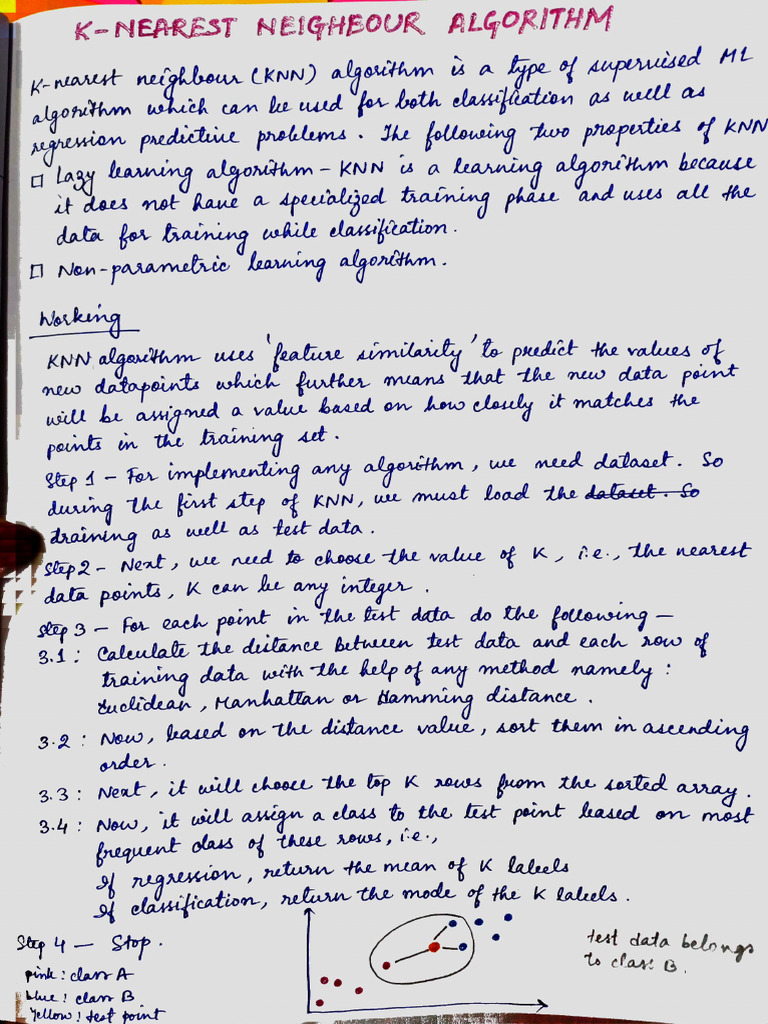 K-NEAREST NEIGHBOUR ALGORITHM
K-nearest neighbour (KNN) algorithm is a type of supervised ML
algorithm which can be used for both classification as well as
regression predictive problems. The following two properties of KNN
□ Lazy learning algorithm - KNN is a learning algorithm because
it does not have a specialized training phase and uses all the
data for training while classification.
□ Non-parametric learning algorithm.
Working
KNN algorithm uses 'feature similarity' to predict the values of
new datapoints which further means that the new data point
will be assigned a value based on how closely it matches the
points in the training set.
Step 1 - For implementing any algorithm, we need dataset. So
during the first step of KNN, we must load the dataset. So
training as well as test data.
Step 2 - Next, we need to choose the value of K, i.e., the nearest
data points, K can be any integer.
Step 3 - For each point in the test data do the following -
3.1 : Calculate the distance between test data and each row of
training data with the help of any method namely :
Euclidean, Manhattan or Hamming distance.
3.2 : Now, based on the distance value, sort them in ascending
order.
3.3 : Next, it will choose the top K rows from the sorted array.
3.4 : Now, it will assign a class to the test point based on most
frequent class of these rows, i.e.,
If regression, return the mean of K labels
If classification, return the mode of the K labels.
Step 4 - Stop.
pink : class A
blue : class B
Yellow : test point
test data belongs
to class B.